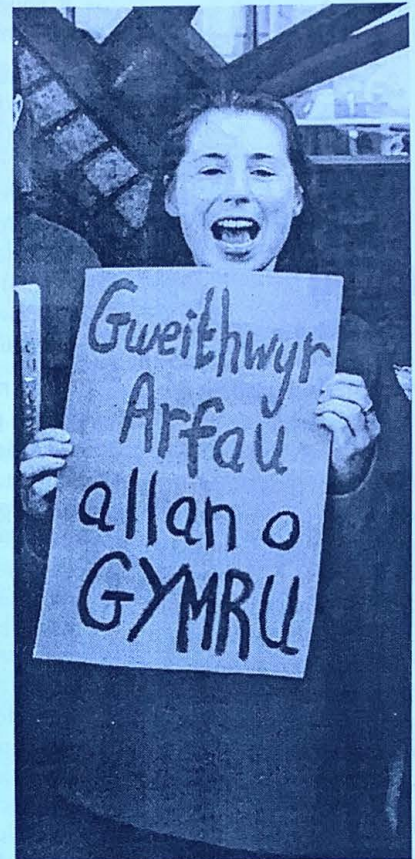 Gweithwyr
Arfau
allan o
GYMRU